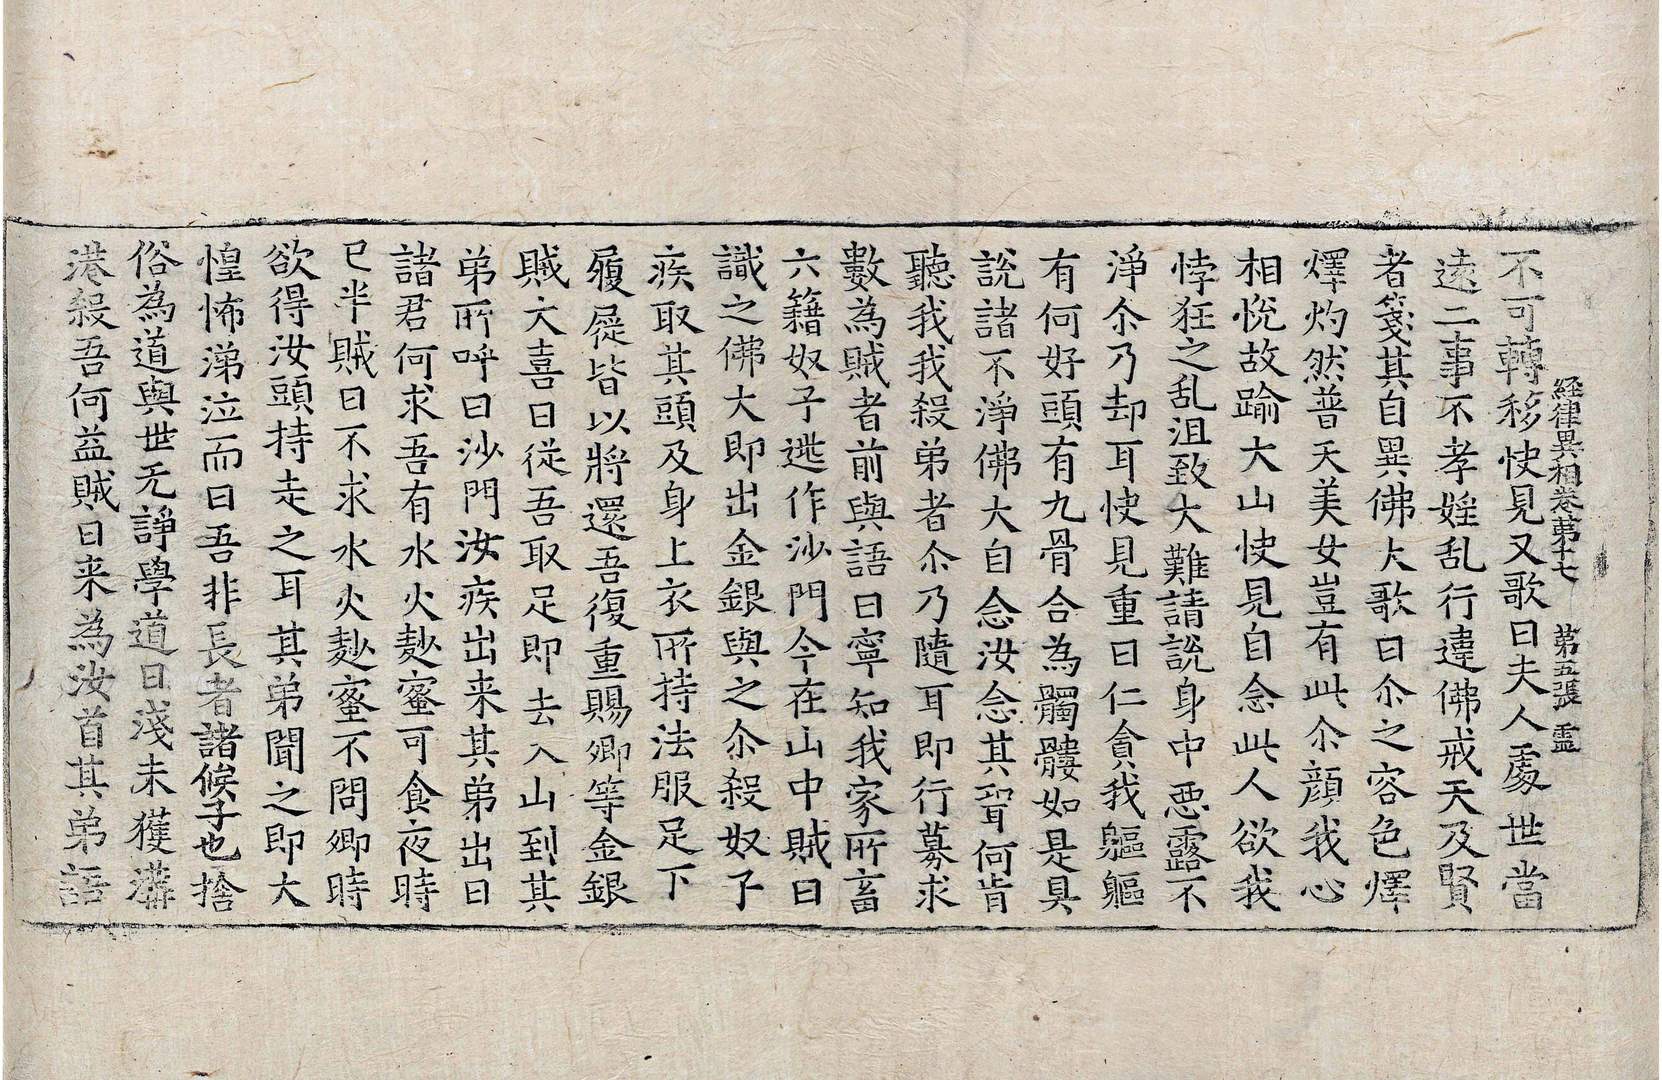 経律異相卷第十七　第五張　霊
不可轉移快見又歌曰夫人處世當
遠二事不孝婬乱行違佛戒天及賢
者箋其自異佛大歌曰尒之容色燡
燡灼然普天美女豈有此尒顔我心
相悅故踰大山快見自念此人欲我
悖狂之乱沮致大難請說身中惡露不
淨尒乃却耳快見重曰仁貪我軀軀
有何好頭有九骨合為髑髏如是具
說諸不淨佛大自念汝念其聟何肯
聽我我殺弟者尒乃隨耳即行募求
數為賊者前與語曰寧知我家所畜
六籍奴子逃作沙門今在山中賊曰
識之佛大即出金銀與之尒殺奴子
疾取其頭及身上衣所持法服足下
履屣皆以將還吾復重賜卿等金銀
賊大喜曰從吾取足即去入山到其
弟所呼曰沙門汝疾出来其弟出曰
諸君何求吾有水火麨蜜可食夜時
已半賊曰不求水火麨蜜不問卿時
欲得汝頭持走之耳其弟聞之即大
惶怖涕泣而曰吾非長者諸候子也捨
俗為道與世无諍學道日淺未獲溝
港殺吾何益賊曰来為汝首其弟語